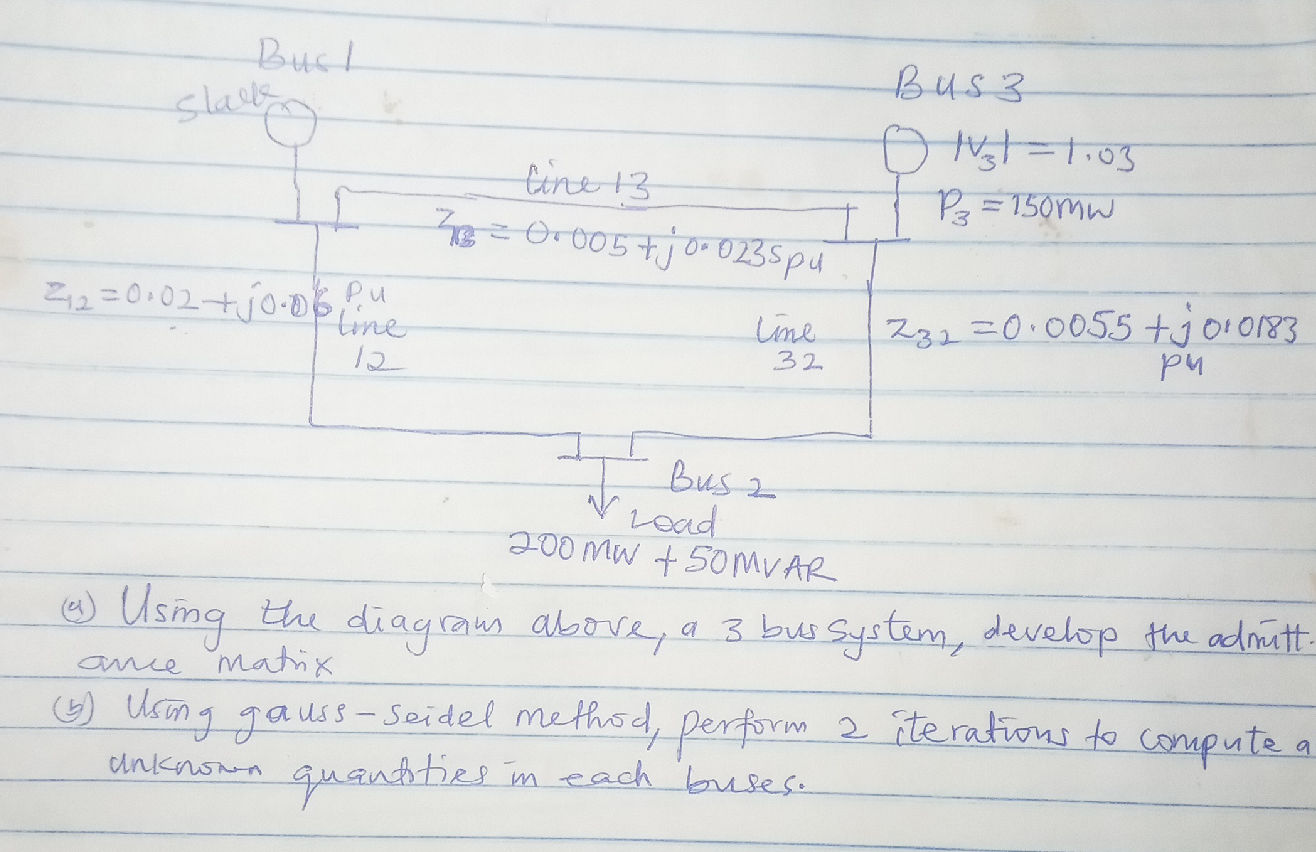 Bus 1
Slack
Bus 3
|V3| = 1.03
Line 13
P3 = 150mw
Z13 = 0.005 + j0.0235pu
Z12 = 0.02 + j0.06 pu
line
12
Line
32
Z32 = 0.0055 + j0.0183
pu
Bus 2
Load
200 MW + 50 MVAR
(a) Using the diagram above, a 3 bus system, develop the admitt-
ance matrix
(b) Using gauss-seidel method, perform 2 iterations to compute a
unknown quantities in each buses.